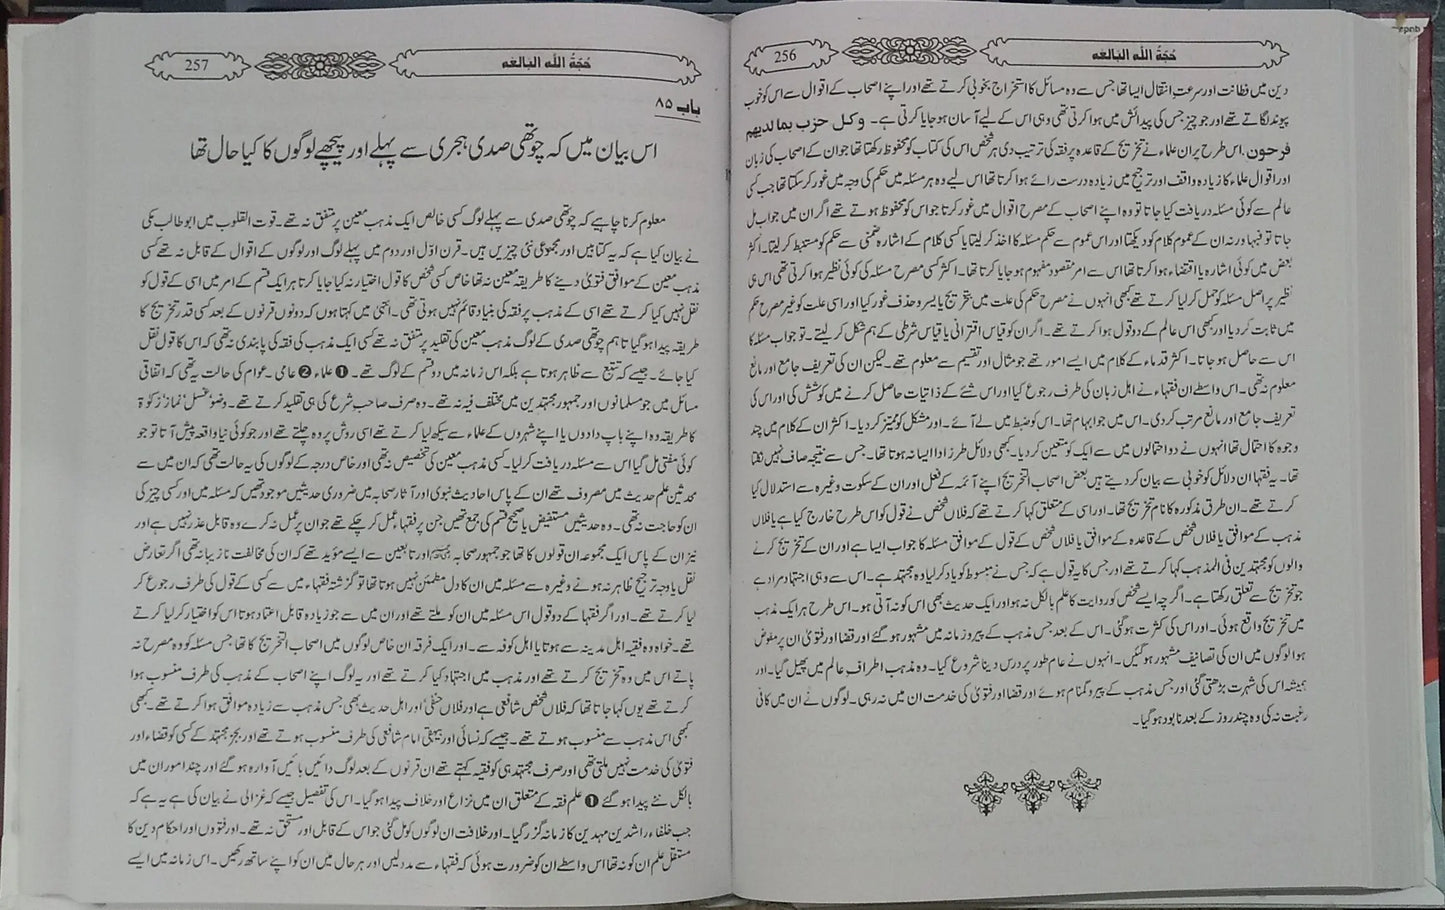 256
حُجَّةُ اللّٰه البالغه
دین میں فطانت اور سرعتِ انتقال ایسا تھا جس سے وہ مسائل کا استخراج بخوبی کرتے تھے اور اپنے اصحاب کے اقوال سے اس کو خوب
پیوند لگاتے تھے اور جو چیز جس کی پیدائش میں ہوا کرتی تھی وہی اس کے لیے آسان ہو جایا کرتی ہے۔ وکل حزب بما لدیهم
فرحون. اس طرح پر ان علماء نے تخریج کے قاعدہ پر فقہ کی ترتیب دی ہر شخص اس کی کتاب کو محفوظ رکھتا تھا جو ان کے اصحاب کی زبان
اور اقوال علماء کا زیادہ واقف اور ترجیح میں زیادہ درست رائے ہوا کرتا تھا اس لیے وہ ہر مسئلہ میں حکم کی وجہ میں غور کر سکتا تھا جب کسی
عالم سے کوئی مسئلہ دریافت کیا جاتا تو وہ اپنے اصحاب کے مصرح اقوال میں غور کرتا جو اس کو محفوظ ہوتے تھے اگر ان میں جواب مل
جاتا تو فبہا ورنہ ان کے عموم کلام کو دیکھتا اور اس عموم سے حکم مسئلہ کا اخذ کر لیتا یا کسی کلام کے اشارہ ضمنی سے حکم کو مستنبط کر لیتا۔ اکثر
بعض میں کوئی اشارہ یا اقتضاء ہوا کرتا تھا اس سے امر مقصود مفہوم ہو جایا کرتا تھا۔ اکثر کسی مصرح مسئلہ کی کوئی نظیر ہوا کرتی تھی اس ہی
نظیر پر اصل مسئلہ کو حمل کر لیا کرتے تھے کبھی انہوں نے مصرح حکم کی علت میں بتخریج یا یسر و حذف غور کیا اور اسی علت کو غیر مصرح حکم
میں ثابت کر دیا اور کبھی اس عالم کے دو قول ہوا کرتے تھے۔ اگر ان کو قیاس اقترانی یا قیاس شرطی کے ہم شکل کر لیتے۔ تو جواب مسئلہ کا
اس سے حاصل ہو جاتا۔ اکثر قدماء کے کلام میں ایسے امور تھے جو مثال اور تقسیم سے معلوم تھے۔ لیکن ان کی تعریف جامع اور مانع
معلوم نہ تھی۔ اس واسطے ان فقہاء نے اہل زبان کی طرف رجوع کیا اور اس شئے کے ذاتیات حاصل کرنے میں کوشش کی اور اس کی
تعریف جامع اور مانع مرتب کر دی۔ اس میں جو ابہام تھا۔ اس کو ضبط میں لے آئے۔ اور مشکل کو ممیّز کر دیا۔ اکثر ان کے کلام میں چند
وجوہ کا احتمال تھا انہوں نے دو احتمالوں میں سے ایک کو متعین کر دیا۔ کبھی دلائل طرز ادا ایسا نہ ہوتا تھا۔ جس سے نتیجہ صاف نہیں نکلتا
تھا۔ یہ فقہا ان دلائل کو خوبی سے بیان کر دیتے ہیں بعض اصحاب التخریج اپنے آئمہ کے فعل اور ان کے سکوت وغیرہ سے استدلال کیا
کرتے تھے۔ ان طرق مذکورہ کا نام تخریج تھا۔ اور اسی کے متعلق کہا کرتے تھے کہ فلاں شخص نے قول کو اس طرح خارج کیا ہے یا فلاں
مذہب کے موافق یا فلاں شخص کے قاعدہ کے موافق یا فلاں شخص کے قول کے موافق مسئلہ کا جواب ایسا ہے اور ان کے تخریج کرنے
والوں کو مجتہدین فی المذہب کہا کرتے تھے اور جس کا یہ قول ہے کہ جس نے مبسوط کو یاد کر لیا وہ مجتہد ہے۔ اس سے وہی اجتہاد مراد ہے
جو تخریج سے تعلق رکھتا ہے۔ اگرچہ ایسے شخص کو روایت کا علم بالکل نہ ہو اور ایک حدیث بھی اس کو نہ آتی ہو۔ اس طرح ہر ایک مذہب
میں تخریج واقع ہوئی۔ اور اس کی کثرت ہو گئی۔ اس کے بعد جس مذہب کے پیرو زمانہ میں مشہور ہو گئے اور قضا اور فتویٰ ان پر مفوض
ہوا لوگوں میں ان کی تصانیف مشہور ہو گئیں۔ انہوں نے عام طور پر درس دینا شروع کیا۔ وہ مذہب اطراف عالم میں پھیل گیا۔ اور
ہمیشہ اس کی شہرت بڑھتی گئی اور جس مذہب کے پیرو گمنام ہوئے اور قضا اور فتویٰ کی خدمت ان میں نہ رہی۔ لوگوں نے ان میں کافی
رغبت نہ کی وہ چند روز کے بعد نابود ہو گیا۔
257
حُجَّةُ اللّٰه البالغه
باب ۸۵
اس بیان میں کہ چوتھی صدی ہجری سے پہلے اور پیچھے لوگوں کا کیا حال تھا
معلوم کرنا چاہیے کہ چوتھی صدی سے پہلے لوگ کسی خالص ایک مذہب معین پر متفق نہ تھے۔ قوت القلوب میں ابو طالب مکی
نے بیان کیا ہے کہ یہ کتابیں اور مجموعی نئی چیزیں ہیں۔ قرن اوّل اور دوم میں پہلے لوگ اور لوگوں کے اقوال کے قابل نہ تھے کسی
مذہب معین کے موافق فتویٰ دینے کا طریقہ معین نہ تھا خاص کسی شخص کا قول اختیار نہ کیا جایا کرتا ہر ایک قسم کے امر میں اسی کے قول کو
نقل نہیں کیا کرتے تھے اسی کے مذہب پر فقہ کی بنیاد قائم نہیں ہوتی تھی۔ انتہی میں کہتا ہوں کہ دونوں قرنوں کے بعد کسی قدر تخریج کا
طریقہ پیدا ہو گیا تاہم چوتھی صدی کے لوگ مذہب معین کی تقلید پر متفق نہ تھے کسی ایک مذہب کی فقہ کی پابندی نہ تھی کہ اس کا قول نقل
کیا جائے۔ جیسے کہ تتبع سے ظاہر ہوتا ہے بلکہ اس زمانہ میں دو قسم کے لوگ تھے۔ ❶ علماء ❷ عامی۔ عوام کی حالت یہ تھی کہ اتفاقی
مسائل میں جو مسلمانوں اور جمہور مجتہدین میں مختلف فیہ نہ تھے۔ وہ صرف صاحب شرع کی ہی تقلید کرتے تھے۔ وضو، غسل، نماز، زکوٰۃ
کا طریقہ وہ اپنے باپ دادوں یا اپنے شہروں کے علماء سے سیکھ لیا کرتے تھے اسی روش پر وہ چلتے تھے اور جو کوئی نیا واقعہ پیش آتا تو جو
کوئی مفتی مل گیا اس سے مسئلہ دریافت کر لیا۔ کسی مذہب معین کی تخصیص نہ تھی اور خاص درجہ کے لوگوں کی یہ حالت تھی کہ ان میں سے
محدثین علم حدیث میں مصروف تھے ان کے پاس احادیث نبوی اور آثار صحابہ میں ضروری حدیثیں موجود تھیں کہ مسئلہ میں اور کسی چیز کی
ان کو حاجت نہ تھی۔ وہ حدیثیں مستفیض یا صحیح قسم کی جمع تھیں جن پر فقہا عمل کر چکے تھے جو ان پر عمل نہ کرے وہ قابل عذر نہیں ہے اور
نیز ان کے پاس ایک مجموعہ ان قولوں کا تھا جو جمہور صحابہ اور تابعین سے ایسے مؤید تھے کہ ان کی مخالفت نازیبا نہ تھی اگر تعارض
نقل یا وجہ ترجیح ظاہر نہ ہونے وغیرہ سے مسئلہ میں ان کا دل مطمئن نہیں ہوتا تھا تو گزشتہ فقہاء میں سے کسی کے قول کی طرف رجوع کر
لیا کرتے تھے۔ اور اگر فقہا کے دو قول اس مسئلہ میں ان کو ملتے تھے اور ان میں سے جو زیادہ قابل اعتماد ہوتا اس کو اختیار کر لیا کرتے
تھے۔ خواہ وہ فقیہ اہل مدینہ سے ہوتا یا اہل کوفہ سے۔ اور ایک فرقہ ان خاص لوگوں میں اصحاب التخریج کا تھا، جس مسئلہ کو وہ مصرح نہ
پاتے اس میں وہ تخریج کرتے تھے اور مذہب میں اجتہاد کیا کرتے تھے اور یہ لوگ اپنے اصحاب کے مذہب کی طرف منسوب ہوا
کرتے تھے یوں کہا جاتا تھا کہ فلاں شخص شافعی ہے اور فلاں حنفی اور اہل حدیث بھی جس مذہب سے زیادہ موافق ہوا کرتے تھے۔ کبھی
کبھی اس مذہب سے منسوب ہوتے تھے۔ جیسے کہ نسائی اور بیہقی امام شافعی کی طرف منسوب ہوتے تھے اور بجز مجتہد کے کسی کو قضاء اور
فتویٰ کی خدمت نہیں ملتی تھی اور صرف مجتہد ہی کو فقیہ کہتے تھے ان قرنوں کے بعد لوگ دائیں بائیں آوارہ ہو گئے اور چند امور ان میں
بالکل نئے پیدا ہو گئے ❶ علم فقہ کے متعلق ان میں نزاع اور خلاف پیدا ہو گیا۔ اس کی تفصیل جیسے کہ غزالی نے بیان کی ہے یہ ہے کہ
جب خلفاء راشدین مہدیین کا زمانہ گزر گیا۔ اور خلافت ان لوگوں کو مل گئی جو اس کے قابل اور مستحق نہ تھے۔ اور فتووں اور احکام دین کا
مستقل علم ان کو نہ تھا اس واسطے ان کو ضرورت ہوئی کہ فقہاء سے مدد لیں اور ہر حال میں ان کو اپنے ساتھ رکھیں۔ اس زمانہ میں ایسے